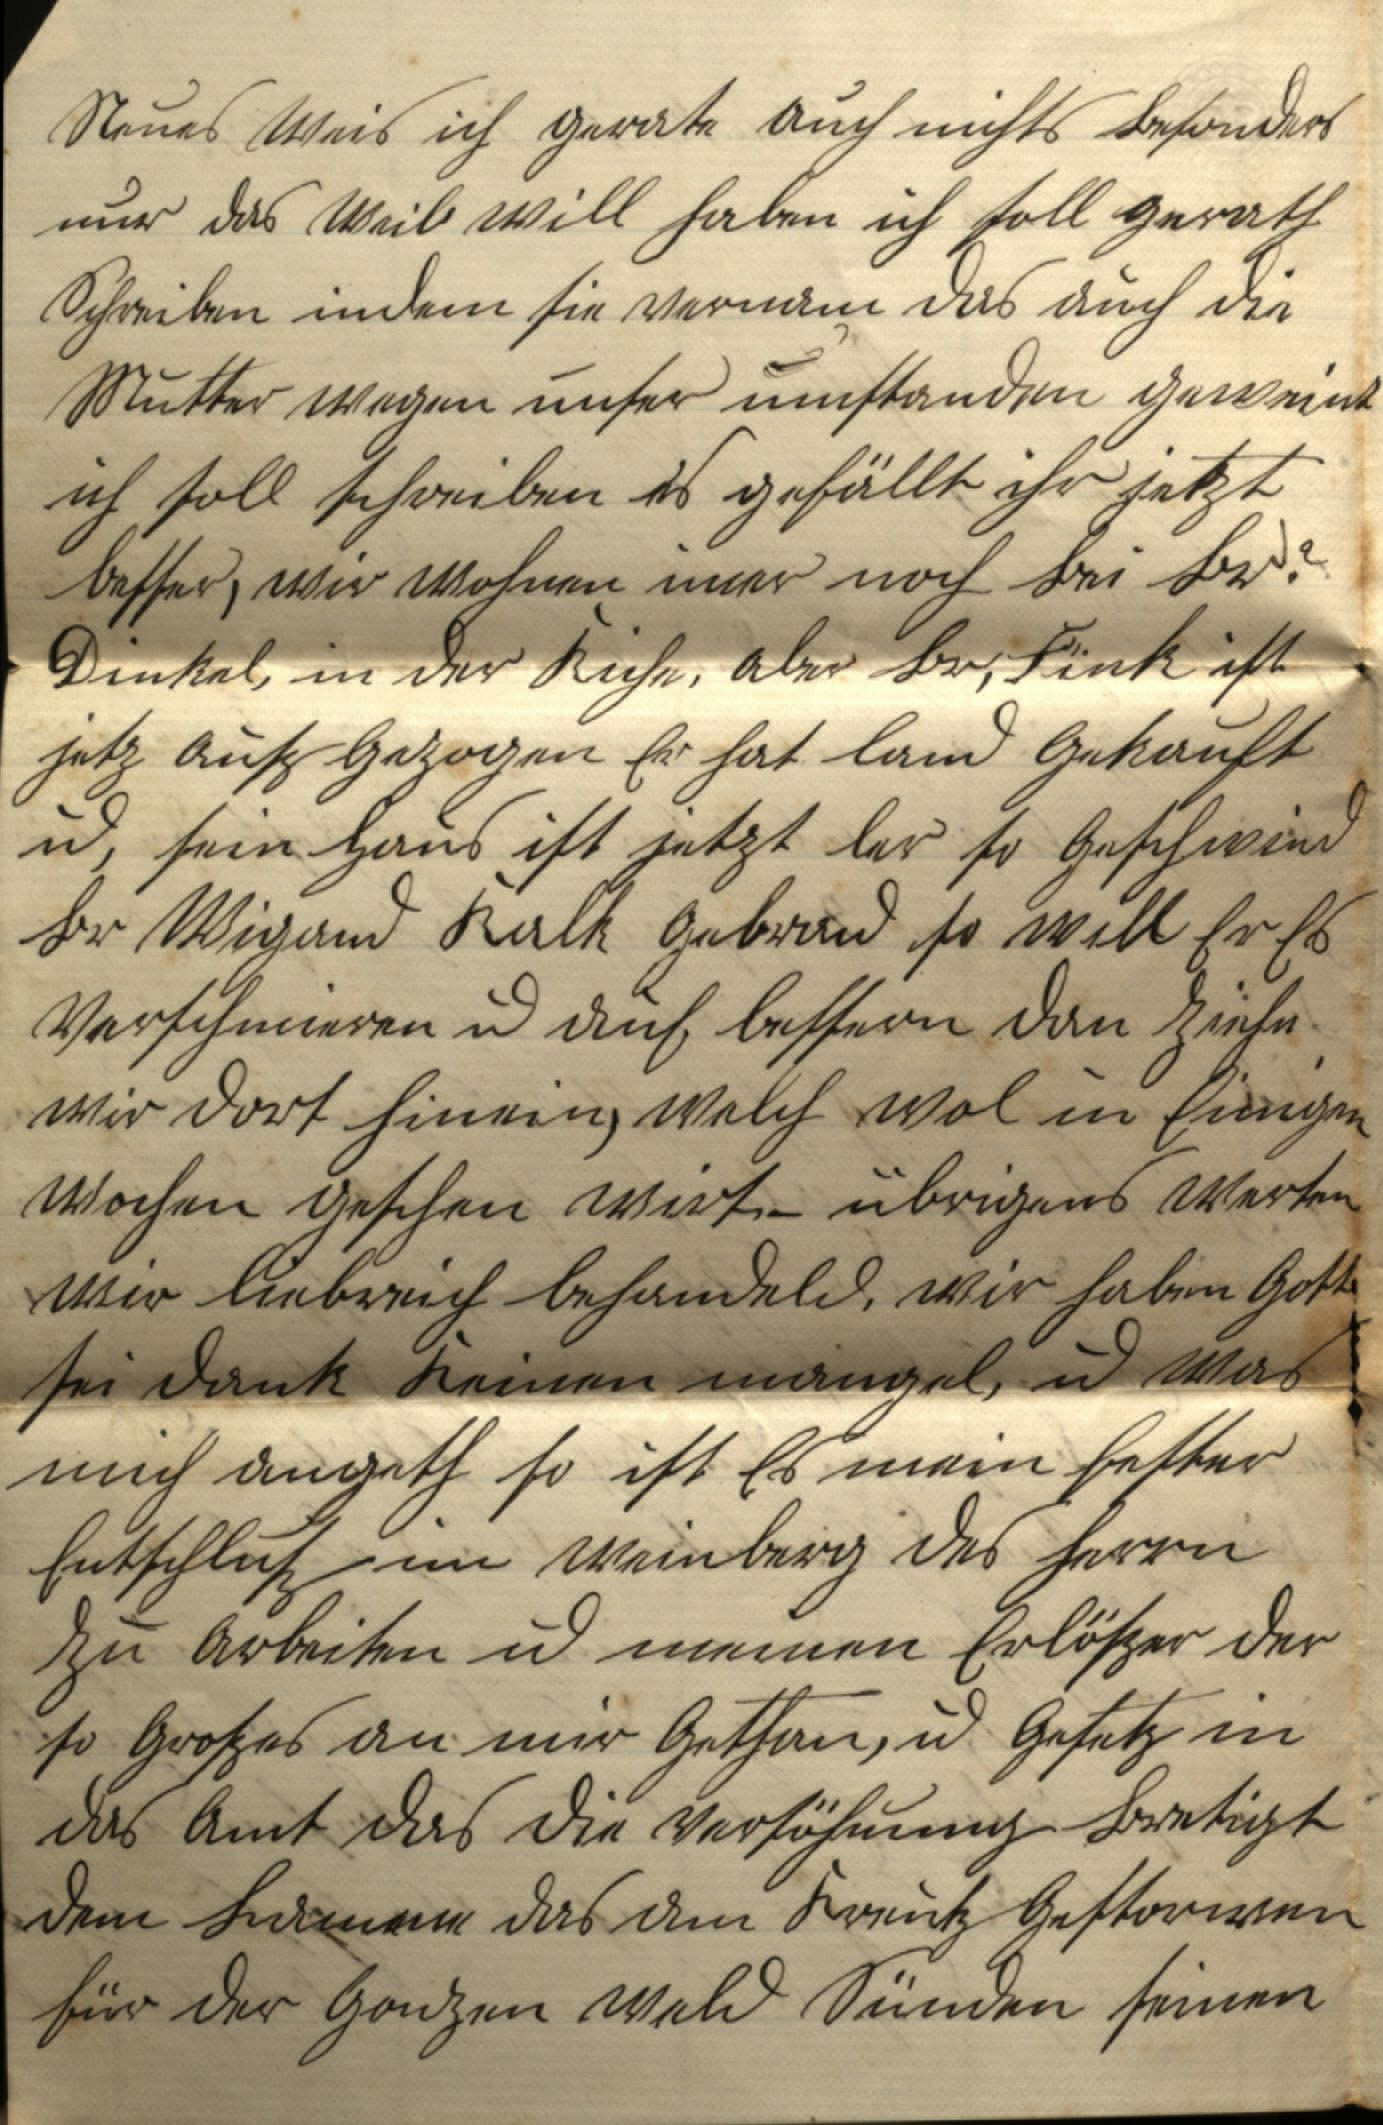 Neues Weis ich gerate auch nichts besonders
nur das Weib will haben ich soll gerath
Schreiben indem sie vernam das auch die
Mutter wegen unser umstanden geweint
ich soll schreiben es gefällt ihr jetzt
besser, wir Wohnen imer noch bei Br.
Dinkel, in der Kiche, aber Br, Fink ist
jetz Ausz Gezogen Er hat land Gekauft
ud, sein Haus ist jetzt ler so Geschwind
Br Wigand Kalk Gebrand so will Er Es
Verschmieren ud auf bessern dan Ziehe
wir dort hinein, welch wol in Einigen
Wochen geschen wirt – übrigens Werten
Wir liebreich behandeld, wir haben Gott
sei dank Keinen mangel, ud Was
mich angeth so ist Es mein fester
Entschlusz im Weinberg des Herrn
Zu Arbeiten ud meinen Erlöszer der
so Groszes an mir Gethan, ud Gesetz in
das Amt das die Versöhnung Bretigt
dem Lamme das am Kreutz Gestorwen
für der Gantzen Weld Sünden seinen